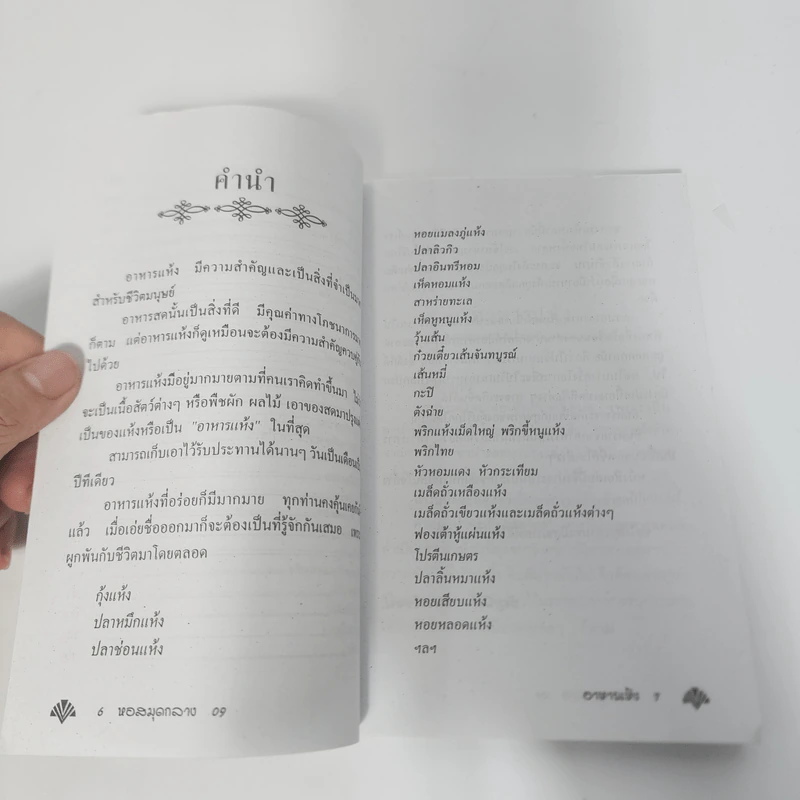 คำนำ
อาหารแห้ง มีความสำคัญและเป็นสิ่งที่จำเป็น
สำหรับชีวิตมนุษย์
อาหารสดนั้นเป็นสิ่งที่ดี มีคุณค่าทางโภชนาการ
ก็ตาม แต่อาหารแห้งก็ดูเหมือนจะต้องมีความสำคัญ
ไปด้วย
อาหารแห้งมีอยู่มากมายตามที่คนเราคิดทำขึ้นมา
จะเป็นเนื้อสัตว์ต่างๆ หรือพืชผัก ผลไม้ เอาของสดมา
เป็นของแห้งหรือเป็น "อาหารแห้ง" ในที่สุด
สามารถเก็บเอาไว้รับประทานได้นานๆ วันเป็นเดือน
ปีทีเดียว
อาหารแห้งที่อร่อยก็มีมากมาย ทุกท่านคงคุ้นเคย
แล้ว เมื่อเอ่ยชื่อออกมาก็จะต้องเป็นที่รู้จักกันเสมอ
ผูกพันกับชีวิตมาโดยตลอด
กุ้งแห้ง
ปลาหมึกแห้ง
ปลาช่อนแห้ง
6 หอสมุดกลาง 09
หอยแมลงภู่แห้ง
ปลาสิวกิว
ปลาอินทรีหอม
เห็ดหอมแห้ง
สาหร่ายทะเล
เห็ดหูหนูแห้ง
วุ้นเส้น
ก๋วยเตี๋ยวเส้นจันทบูรณ์
เส้นหมี่
กะปิ
ตังฉ่าย
พริกแห้งเม็ดใหญ่ พริกขี้หนูแห้ง
พริกไทย
หัวหอมแดง หัวกระเทียม
เมล็ดถั่วเหลืองแห้ง
เมล็ดถั่วเขียวแห้งและเมล็ดถั่วแห้งต่างๆ
ฟองเต้าหู้แผ่นแห้ง
โปรตีนเกษตร
ปลาลิ้นหมาแห้ง
หอยเสียบแห้ง
หอยหลอดแห้ง
ฯลฯ
อาหารแห้ง 7